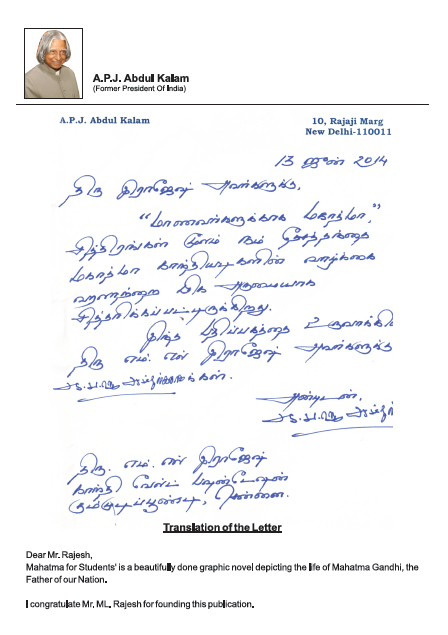 A.P.J. Abdul Kalam
(Former President Of India)
A.P.J. Abdul Kalam
10, Rajaji Marg
New Delhi-110011
13 ஜூன் 2014
திரு இராஜேஷ் அவர்களுக்கு,
"மாணவர்களுக்காக மகாத்மா,"
சித்திரங்கள் மூலம் நம் தேசத்தந்தை
மகாத்மா காந்தியடிகளின் வாழ்க்கை
வரலாற்றை மிக அருமையாக
சித்தரிக்கப்பட்டிருக்கிறது.
இந்த பதிப்பகத்தை உருவாக்கி
திரு எம். எல் இராஜேஷ் அவர்களுக்கு
அன்புடன்,
திரு. எம். எல் இராஜேஷ்
காந்தி வேர்ல்ட் பவுன்டேஷன்
கும்மிடிப்பூண்டி, சென்னை.
Translation of the Letter
Dear Mr. Rajesh,
Mahatma for Students' is a beautifully done graphic novel depicting the life of Mahatma Gandhi, the
Father of our Nation.
I congratulate Mr, ML, Rajesh for founding this publication.